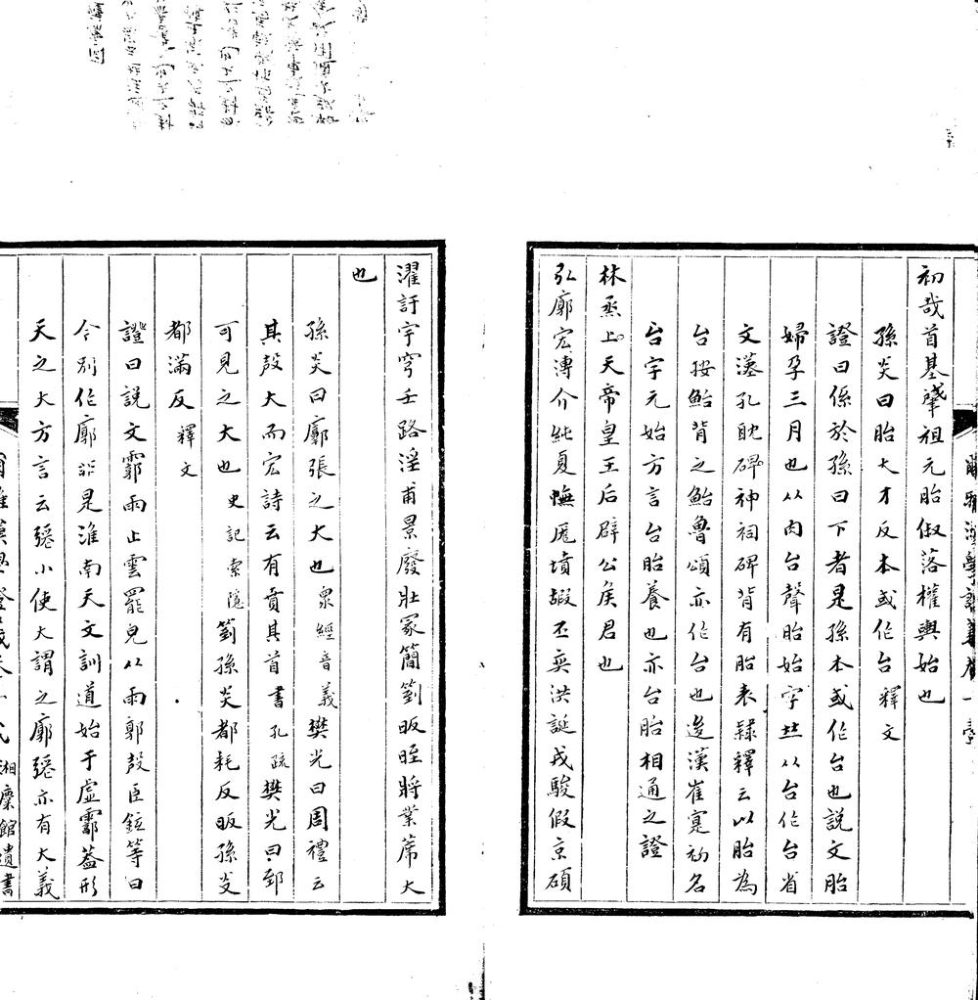 初哉首基肇祖元胎俶落權輿始也
孫炎曰胎大才反本或作台釋文
證曰係於孫曰下者是孫本或作台也説文胎
婦孕三月也从肉台聲胎始字並从台作台省
文漢孔耽碑神祠碑背有胎表隸釋云以胎為
台按鮐背之鮐魯頌亦作台也迨漢崔寔初名
台字元始方言台胎養也亦台胎相通之證
林烝上天帝皇王后辟公矦君也
弘廓宏溥介純夏幠厖墳嘏丕奕洪誕戎駿假京碩
濯訏宇穹壬路淫甫景廢壯冢簡劉昄晊將業席大
也
孫炎曰廓張之大也衆經音義樊光曰周禮云
其聲大而宏詩云有賁其首書孔疏樊光曰郅
可見之大也史記索隱劉孫炎都耗反昄孫炎
都滿反釋文
證曰説文霩雨止雲罷皃从雨郭聲臣鉉等曰
今別作廓非是淮南天文訓道始于虛霩葢形
天之大方言云張小使大謂之廓張亦有大義
湘麋館遺書